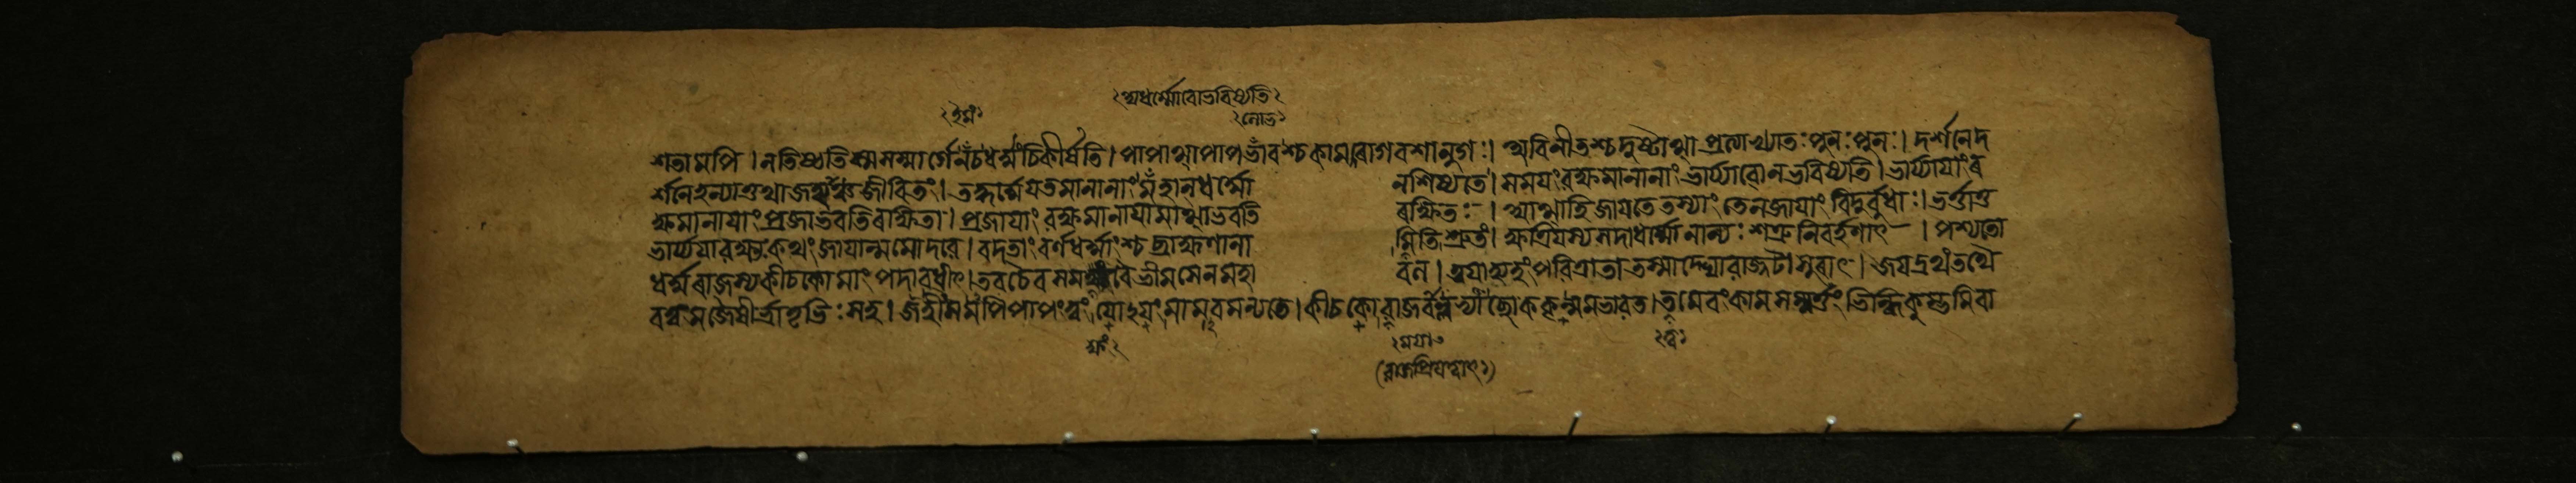 অধর্ম্মোবোভবিষ্যতি
ইমং
নোত্র
শতামপি । নতিষ্ঠতিস্মসন্মার্গেনচধর্ম্মংচিকীর্ষতি । পাপাত্মাপাপভাবশ্চকামরাগবশানুগঃ । অবিনীতশ্চদুষ্টাত্মাপ্রত্যাখ্যাতঃপুনঃপুনঃ । দর্শনেদ
র্শনেহন্যাত্তথাজহ্যাঞ্চজীবিতং । তদ্ধর্ম্মেযতমানানাংমহানধর্ম্মো নশিষ্যতে । সময়ংরক্ষমানানাংভার্য্যাবোনভবিষ্যতি । ভার্য্যায়াংর
ক্ষমানায়াংপ্রজাভবতিরক্ষিতা । প্রজায়াংরক্ষমানায়ামাত্মাভবতি রক্ষিতঃ । আত্মাহিজায়তেতস্যাংতেনজায়াংবিদুর্বুধাঃ । ভর্ত্তাতু
ভার্য্যয়ারক্ষ্যঃকথংজায়ান্মমোদরে । বদতাংবর্ণধর্ম্মাংশ্চব্রাহ্মণানা মিতিশ্রুতং । ক্ষত্রিয়স্যসদাধর্ম্মোনান্যঃশত্রুনিবর্হণাৎ । পশ্যতো
ধর্ম্মরাজস্যকীচকোমাংপদাবধীৎ । তবচৈবসমক্ষংবৈভীমসেনমহা বল । ত্বয়াহ্যহংপরিত্রাতাতস্মাদ্ঘোরাজ্জটাসুরাৎ । জয়দ্রথংতথৈ
বত্বমজৈষীর্ভ্রাতৃভিঃসহ । জহীমমপিপাপংত্বংযোহয়ংমামবমন্যতে । কীচকোরাজবাল্লভ্যাচ্ছোককৃন্মমভারত । তমেবংকামসম্মত্তংভিন্ধিকুম্ভমিবা
ক্ষং
ময়া
ত্বং
(রাজপ্রিয়ত্বাৎ)